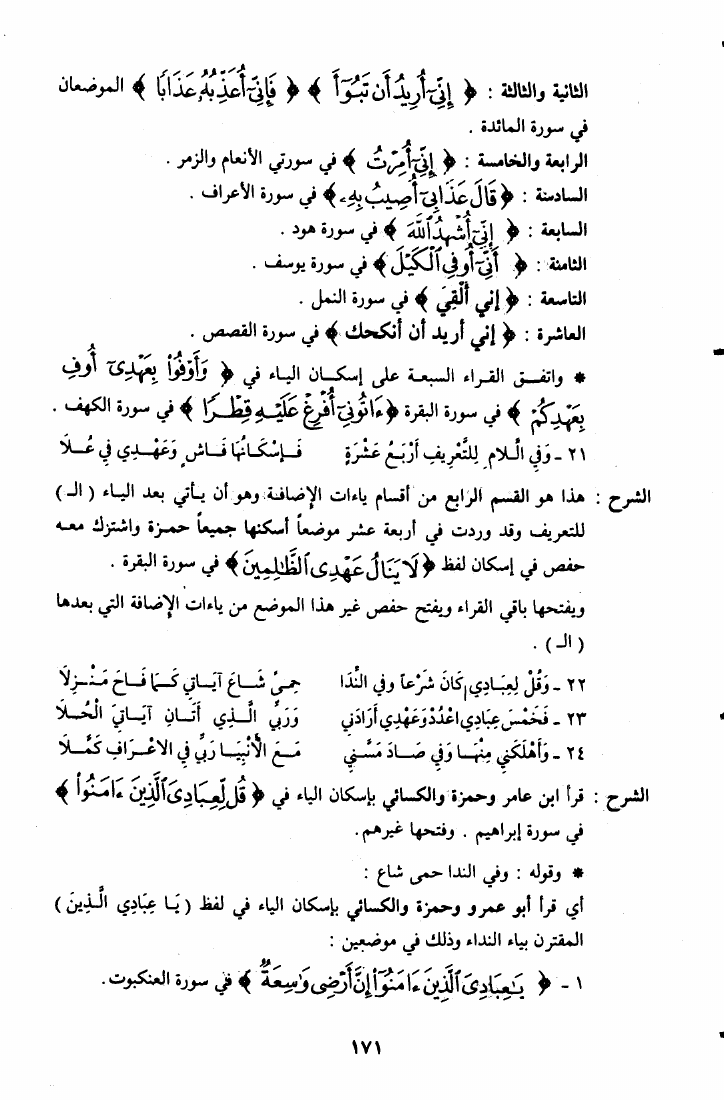 الثانية والثالثة : ﴿ إِنِّىٓ أُرِيدُ أَن تَبُوٓأَ ﴾ ﴿ فَإِنِّىٓ أُعَذِّبُهُۥ عَذَابًا ﴾ الموضعان
في سورة المائدة .
الرابعة والخامسة : ﴿ إِنِّىٓ أُمِرْتُ ﴾ في سورتي الأنعام والزمر .
السادسة : ﴿ قَالَ عَذَابِىٓ أُصِيبُ بِهِۦ ﴾ في سورة الأعراف .
السابعة : ﴿ إِنِّىٓ أُشْهِدُ ٱللَّهَ ﴾ في سورة هود .
الثامنة : ﴿ أَنِّىٓ أُوفِى ٱلْكَيْلَ ﴾ في سورة يوسف .
التاسعة : ﴿ إني أُلْقِيَ ﴾ في سورة النمل .
العاشرة : ﴿ إني أريد أن أنكحك ﴾ في سورة القصص .
* واتفق القراء السبعة على إسكان الياء في ﴿ وَأَوْفُوا۟ بِعَهْدِىٓ أُوفِ
بِعَهْدِكُمْ ﴾ في سورة البقرة ﴿ ءَاتُونِىٓ أُفْرِغْ عَلَيْهِ قِطْرًا ﴾ في سورة الكهف .
٢١ - وَفِي الْلامِ لِلتَّعْرِيفِ أَرْبَعُ عَشْرَةٍ فَإِسْكَانُهَا فَاشٍ وَعَهْدِي فِي عُلَا
الشرح : هذا هو القسم الرابع من أقسام ياءات الإضافة وهو أن يأتي بعد الياء ( الـ )
للتعريف وقد وردت في أربعة عشر موضعاً أسكنها جميعاً حمزة واشترك معه
حفص في إسكان لفظ ﴿ لَا يَنَالُ عَهْدِى ٱلظَّٰلِمِينَ ﴾ في سورة البقرة .
ويفتحها باقي القراء ويفتح حفص غير هذا الموضع من ياءات الإضافة التي بعدها
( الـ ) .
٢٢ - وَقُلْ لِعِبَادِي كَانَ شَرْعاً وفي النِّدَا حِمىً شَاعَ آيَاتِي كَمَا فَاحَ مَنْزِلَا
٢٣ - فَخَمْسَ عِبَادِي اعْدُدْ وَعَهْدِي أَرَادَنِي وَرَبِّي الَّذِي أَتَانِ آيَاتِيَ الْحُلَا
٢٤ - وَأَهْلَكَنِي مِنْهَا وَفِي صَادَ مَسَّنِي مَعَ الْأَنْبِيَا رَبِّي فِي الاعْرَافِ كَمَّلَا
الشرح : قرأ ابن عامر وحمزة والكسائي بإسكان الياء في ﴿ قُل لِّعِبَادِىَ ٱلَّذِينَ ءَامَنُوا۟ ﴾
في سورة إبراهيم . وفتحها غيرهم .
* وقوله : وفي الندا حمى شاع :
أي قرأ أبو عمرو وحمزة والكسائي بإسكان الياء في لفظ ( يَا عِبَادِي الَّذِينَ )
المقترن بياء النداء وذلك في موضعين :
١ - ﴿ يَٰعِبَادِىَ ٱلَّذِينَ ءَامَنُوٓا۟ إِنَّ أَرْضِى وَٰسِعَةٌ ﴾ في سورة العنكبوت .
١٧١